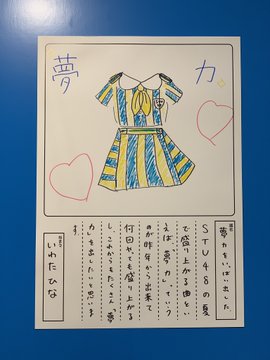 夢 力
題名
夢力をいっぱい出した
STU48の夏
で盛り上がる曲とい
えば「夢力」っていう
のが昨年から出来て
何回やても盛り上がる
し、これからもたくさん「夢
力」を出したいと思いま
す
なまえ
いわたひな